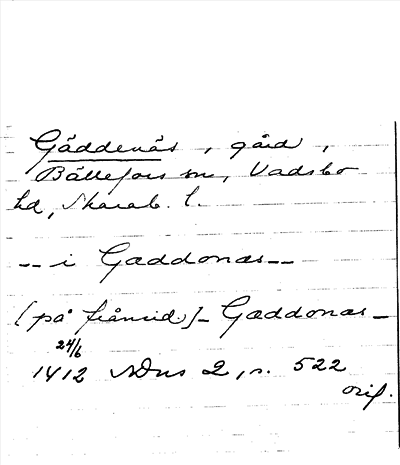 Gäddenäs, gård,
Bällefors sn, Vadsbo
hd, Skarab. l.
-- i Gæddonæs --
[på frånsid.] - Gæddonæs -
24/6
1412 NDns 2, s. 522
orig.